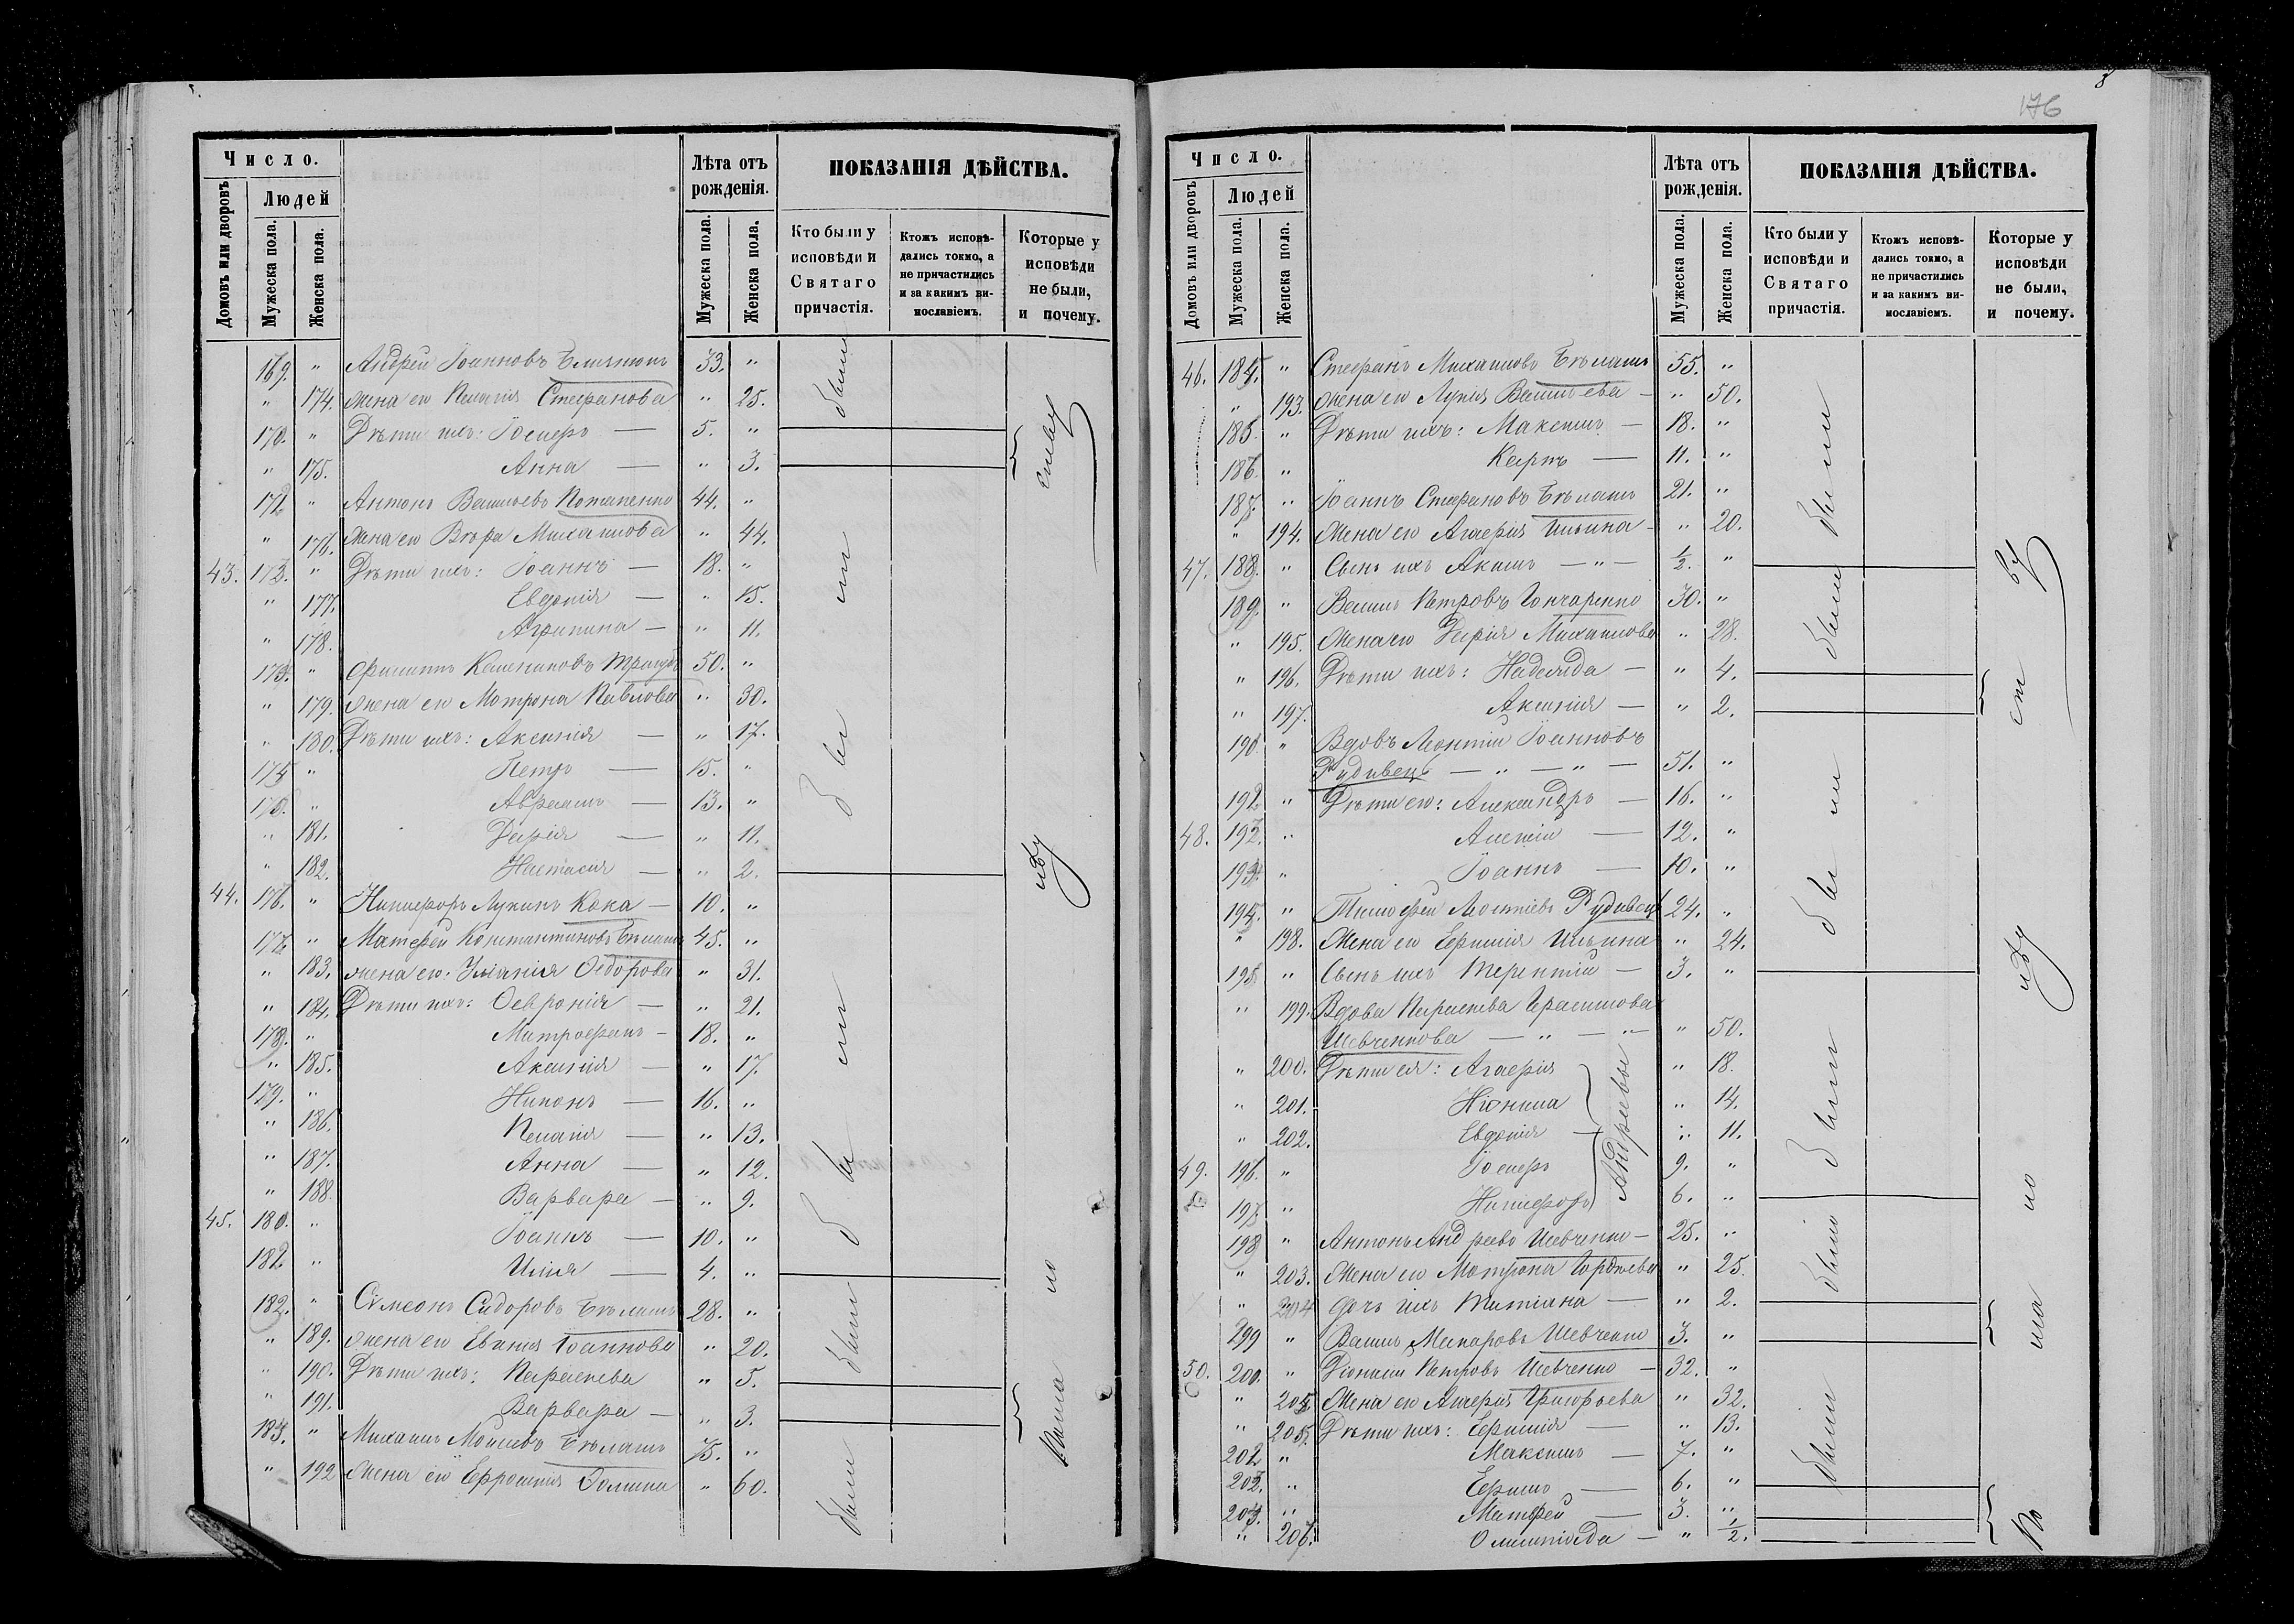 Число.
Домовъ или дворовъ
Людей
Мужеска пола.
Женска пола.
Лѣта отъ рожденія.
Мужеска пола.
Женска пола.
ПОКАЗАНІЯ ДѢЙСТВА.
Кто были у исповѣди и Святаго причастія.
Ктожъ исповѣдались токмо, а не причастились и за какимъ винословіемъ.
Которые у исповѣди не были, и почему.
169. " Андрей Іоанновъ 33. "
" 174. жена его Пелагія Стефанова " 25.
170. " Дѣти ихъ: Іосифъ — 5. "
" 175. Анна — " 3.
" Антонъ Васильевъ Потапенко 44. "
" 176. Жена его Вѣра Михаилова " 44.
43. " Дѣти ихъ: Іоаннъ — 18. "
" 177. Евдокія — " 15.
" 178. Агрипина — " 11.
" Филиппъ 50. "
" 179. жена его Мотрона Павлова " 30.
" 180. Дѣти ихъ: Аксинія — " 17.
" Петръ — 15. "
" Авраамъ — 13. "
" 181. Дарія — " 11.
" 182. Настасія — " 2.
44. 176. " Никифоръ Лукинъ Кока — 10. "
" Матфей Константиновъ Бѣлашъ 45. "
" 183. жена его Уліанія Ѳедорова " 31.
" 184. Дѣти ихъ: Ѳевронія — " 21.
" Митрофанъ — 18. "
" 185. Аксинія — " 17.
179. " Никонъ — 16. "
" 186. Пелагія — " 13.
" 187. Анна — " 12.
" 188. Варвара — " 9.
45. 180. " Іоаннъ — 10. "
" Илія — 4. "
182. " Сѵмеонъ Сидоровъ Бѣлашъ 28. "
" 189. жена его Іоаннова " 20.
" 190. Дѣти ихъ: Параскева " 5.
" 191. Варвара — " 3.
183. " Михаилъ Бѣлашъ 75. "
" 192 Жена его Ефросинія " 60.
были
были
были
были
были
8
176
Число.
Домовъ или дворовъ
Людей
Мужеска пола.
Женска пола.
Лѣта отъ рожденія.
Мужеска пола.
Женска пола.
ПОКАЗАНІЯ ДѢЙСТВА.
Кто были у исповѣди и Святаго причастія.
Ктожъ исповѣдались токмо, а не причастились и за какимъ винословіемъ.
Которые у исповѣди не были, и почему.
46. 184. " Стефанъ Михаиловъ Бѣлашъ 55. "
" 193. жена его Лукія Васильева — " 50.
185. " Дѣти ихъ: Максимъ — 18. "
186. " Карпъ — 11. "
187. " Іоаннъ Стефановъ Бѣлашъ 21. "
" 194. Жена его Агафія Ильина — " 20.
47. 188. " Сынъ ихъ Акимъ — " — ½. "
189. " Василь Петровъ Гончаренко 30. "
" 195. Жена его Дарія Михаилова " 28.
" 196. Дѣти ихъ: Надежда — " 4.
" 197. Аксинія — " 2.
190. " Вдовъ Леонтій Іоанновъ
Рудивецъ — " — " — 51. "
" Дѣти его: Александръ — 16. "
48. " Алексій — 12. "
" Іоаннъ — 10. "
" Тимофей Леонтіевъ Рудивецъ 24. "
" 198. Жена его Ефимія Ильина " 24.
195. " Сынъ ихъ Терентій — 3. "
" 199. Вдова Параскева Герасимова
Шевченкова — " — " — " 50.
" 200. Дѣти ея: Агафія " 18.
" 201. " 14.
" 202. Евдокія — " 11.
49. 196. " Іосифъ 9. "
197. " Никифоръ 6. "
Андреевы
198 " Антонъ Андреевъ Шевченко — 25. "
" 203. Жена его Мотрона Гордѣева " 25.
" 204 дочь ихъ Татіана — " 2.
" Василь Макаровъ Шевченко 3. "
50. 200. " Діонисій Петровъ Шевченко — 32. "
" Жена его Агафія Григорьева " 32.
" Дѣти ихъ: Ефимія — " 13.
" Максимъ — 7. "
" Ефимъ — 6. "
" Матфей — 3. "
" Олимпіада — " ½.
были
были
были
были
были
были
По мало лѣт ст ву